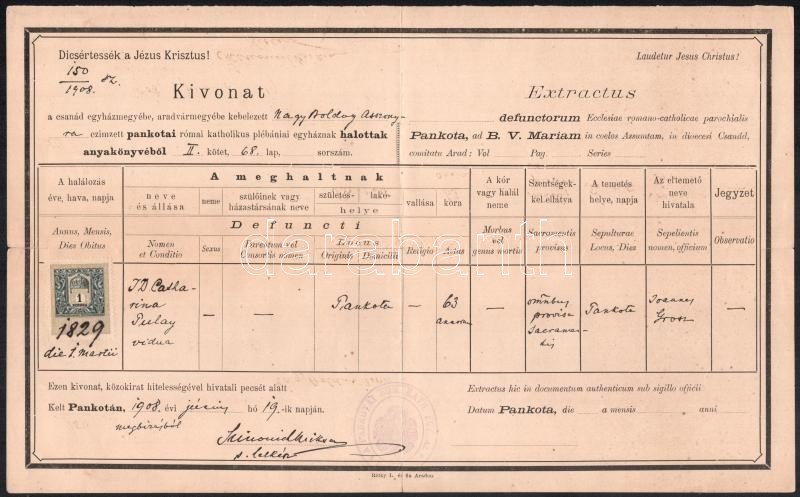 Dicsértessék a Jézus Krisztus!
Laudetur Jesus Christus!
150
1908. 82.
Kivonat
a csanád egyházmegyébe, aradvármegyébe kebelezett Nagy Boldog Asszony-
ra czimzett pankotai római katholikus plébániai egyháznak halottak
anyakönyvéből II. kötet, 68. lap, sorszám.
Extractus
defunctorum Ecclesiae romano-catholicae parochialis
Pankota, ad B. V. Mariam in coelos Assumtam, in dioecesi Csanád,
comitatu Arad: Vol Pag. Series
A halálozás
éve, hava, napja
A meghaltnak
neve
és állása
neme
szülőinek vagy
házastársának neve
születés- lakó-
helye
vallása
kora
A kór
vagy halál
neme
Szentségek-
kel ellátva
A temetés
helye, napja
Az eltemető
neve
hivatala
Jegyzet
Annus, Mensis,
Dies Obitus
Defuncti
Nomen
et Conditio
Sexus
Parentum vel
Consortis nomen
Locus
Originis Domicilii
Religio
Aetas
Morbus
vel
genus mortis
Sacramentis
provisus
Sepulturae
Locus, Dies
Sepelientis
nomen, officium
Observatio
1
1829
die 1. Martii
Catha-
rina
vidua
—
—
Pankota
—
63
annorum
—
omnibus
provisa
Sacramen-
tis
Pankota
Joannes
Grosz
—
darabanth
Ezen kivonat, közokirat hitelességével hivatali pecsét alatt
Kelt Pankotán, 1908. évi június hó 19.-ik napján.
megbizásból
s. lelkész
Extractus hic in documentum authenticum sub sigillo officii
Datum Pankota, die a mensis anni
Réthy L. és fia Aradon.